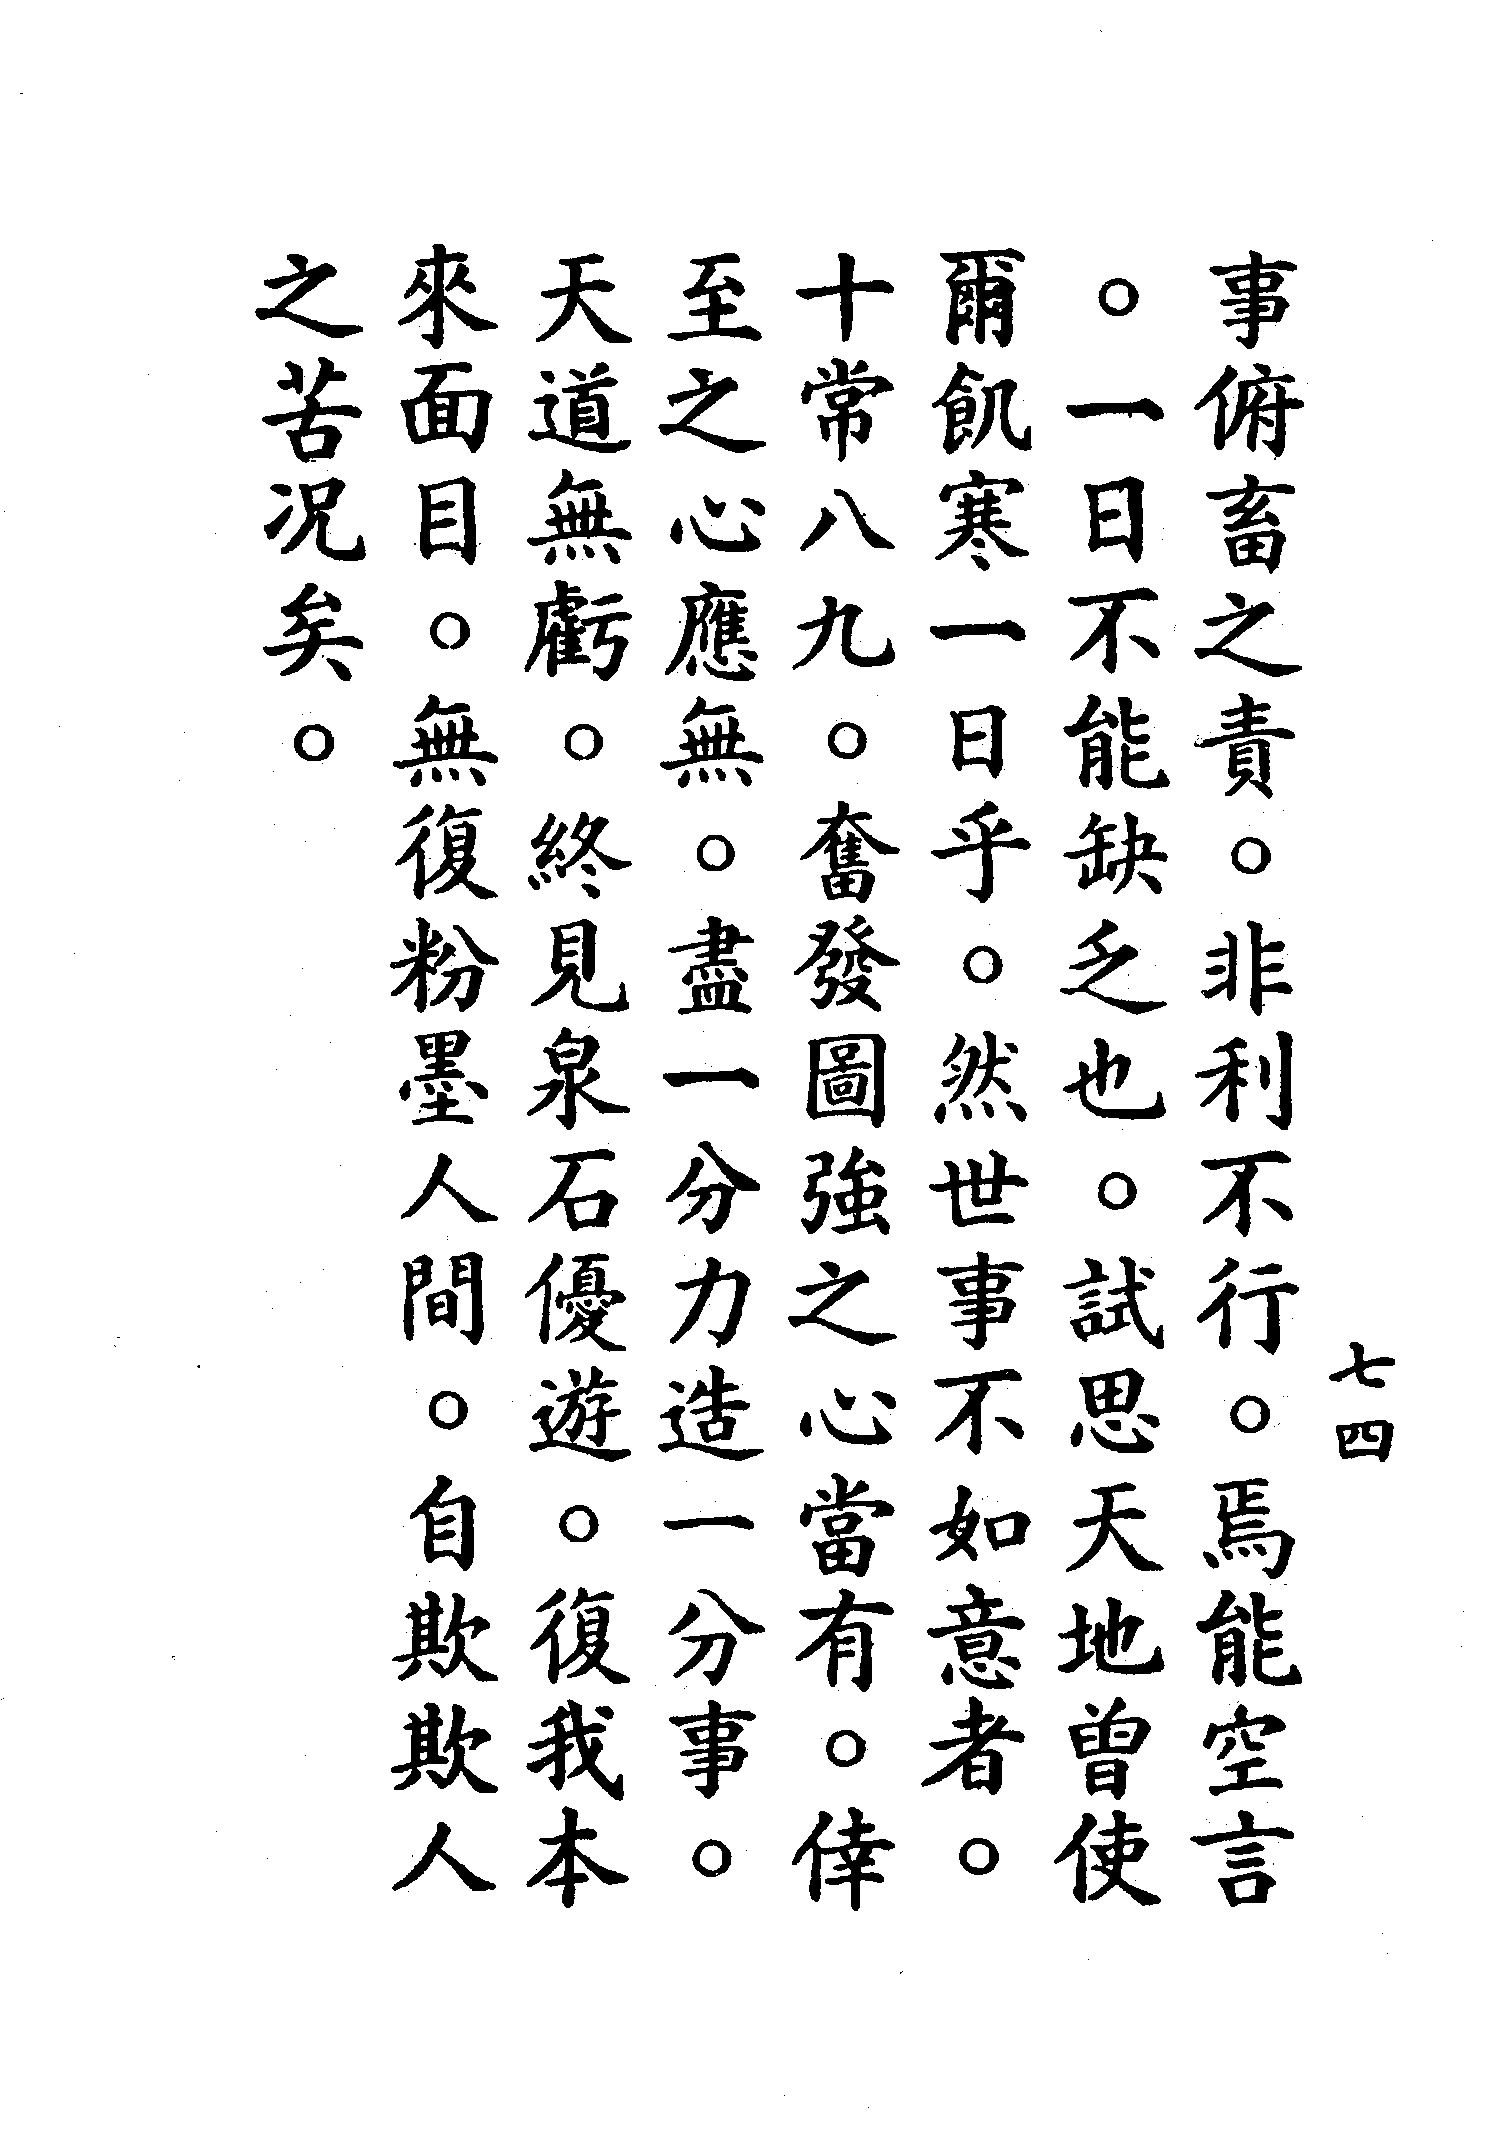 七四
事俯畜之責。非利不行。焉能空言
。一日不能缺乏也。試思天地曾使
爾飢寒一日乎。然世事不如意者。
十常八九。奮發圖強之心當有。倖
至之心應無。盡一分力造一分事。
天道無虧。終見泉石優遊。復我本
來面目。無復粉墨人間。自欺欺人
之苦況矣。